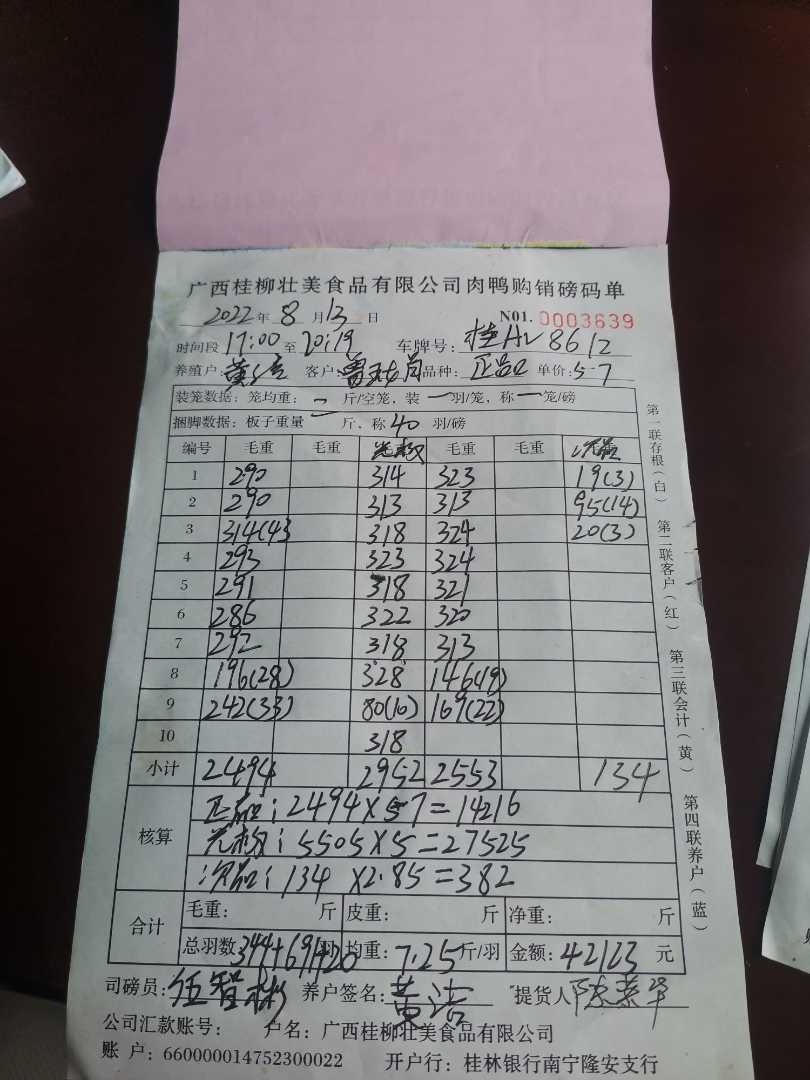 广西桂柳壮美食品有限公司肉鸭购销磅码单
2022年 8 月 13 日 N01. 0003639
时间段 17:00 至 20:19 车牌号: 桂AV 8612
养殖户: 黄 客户: 曾 品种: 正品 单价: 5.7
装笼数据: 笼均重: 斤/空笼, 装 羽/笼, 称 笼/磅
捆脚数据: 板子重量 斤, 称 40 羽/磅
编号 毛重 毛重 毛重 毛重 次品
1 290 314 323 19(3)
2 290 313 313 95(14)
3 314(43 318 324 20(3)
4 293 323 324
5 291 318 321
6 286 322 320
7 292 318 313
8 196(28) 328 146(19)
9 242(33) 80(10) 169(22)
10 318
小计 2494 2952 2553 134
核算
正品: 2494×5.7=14216
5505×5=27525
次品: 134 ×2.85=382
合计
毛重: 斤 皮重: 斤 净重: 斤
总羽数 344+691+20 羽 均重: 7.25 斤/羽 金额: 42123 元
司磅员: 伍智彬 养户签名: 黄洁 提货人
公司汇款账号: 户名: 广西桂柳壮美食品有限公司
账 户: 660000014752300022 开户行: 桂林银行南宁隆安支行
第一联存根(白) 第二联客户(红) 第三联会计(黄) 第四联养户(蓝)